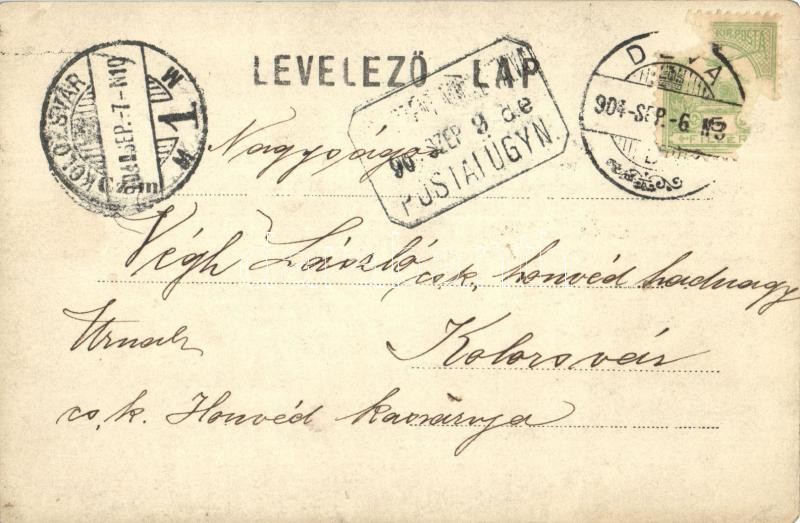 LEVELEZŐ LAP
KOLOZSVÁR
904 SEP.-7-N10
M 1 M
Czim
90 SZEP 9 de
POSTAI ÜGYN.
DÉVA
904-SEP.-6 N3
POSTA
FILLÉR
Nagyságos
Végh László cs. k. honvéd hadnagy
Urnak
Kolozsvár
cs. k. Honvéd kaszárnya